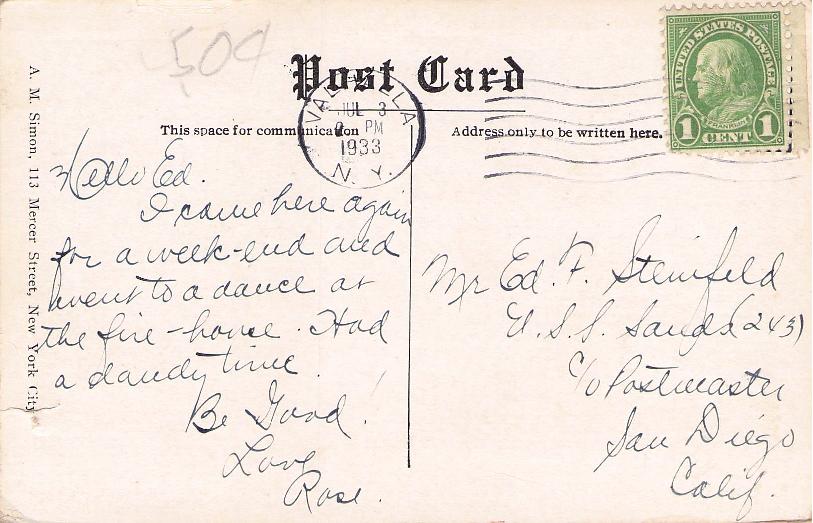 50¢
Post Card
This space for communication
Address only to be written here.
UNITED STATES POSTAGE
FRANKLIN
1 CENT 1
JUL 3
PM
1933
N. Y.
A. M. Simon, 113 Mercer Street, New York City
Hello Ed.
I came here again
for a week-end and
went to a dance at
the fire-house. Had
a dandy time.
Be Good!
Love
Rose.
Mr Ed. F. Steinfeld
U.S.S. Sands (243)
c/o Postmaster
San Diego
Calif.